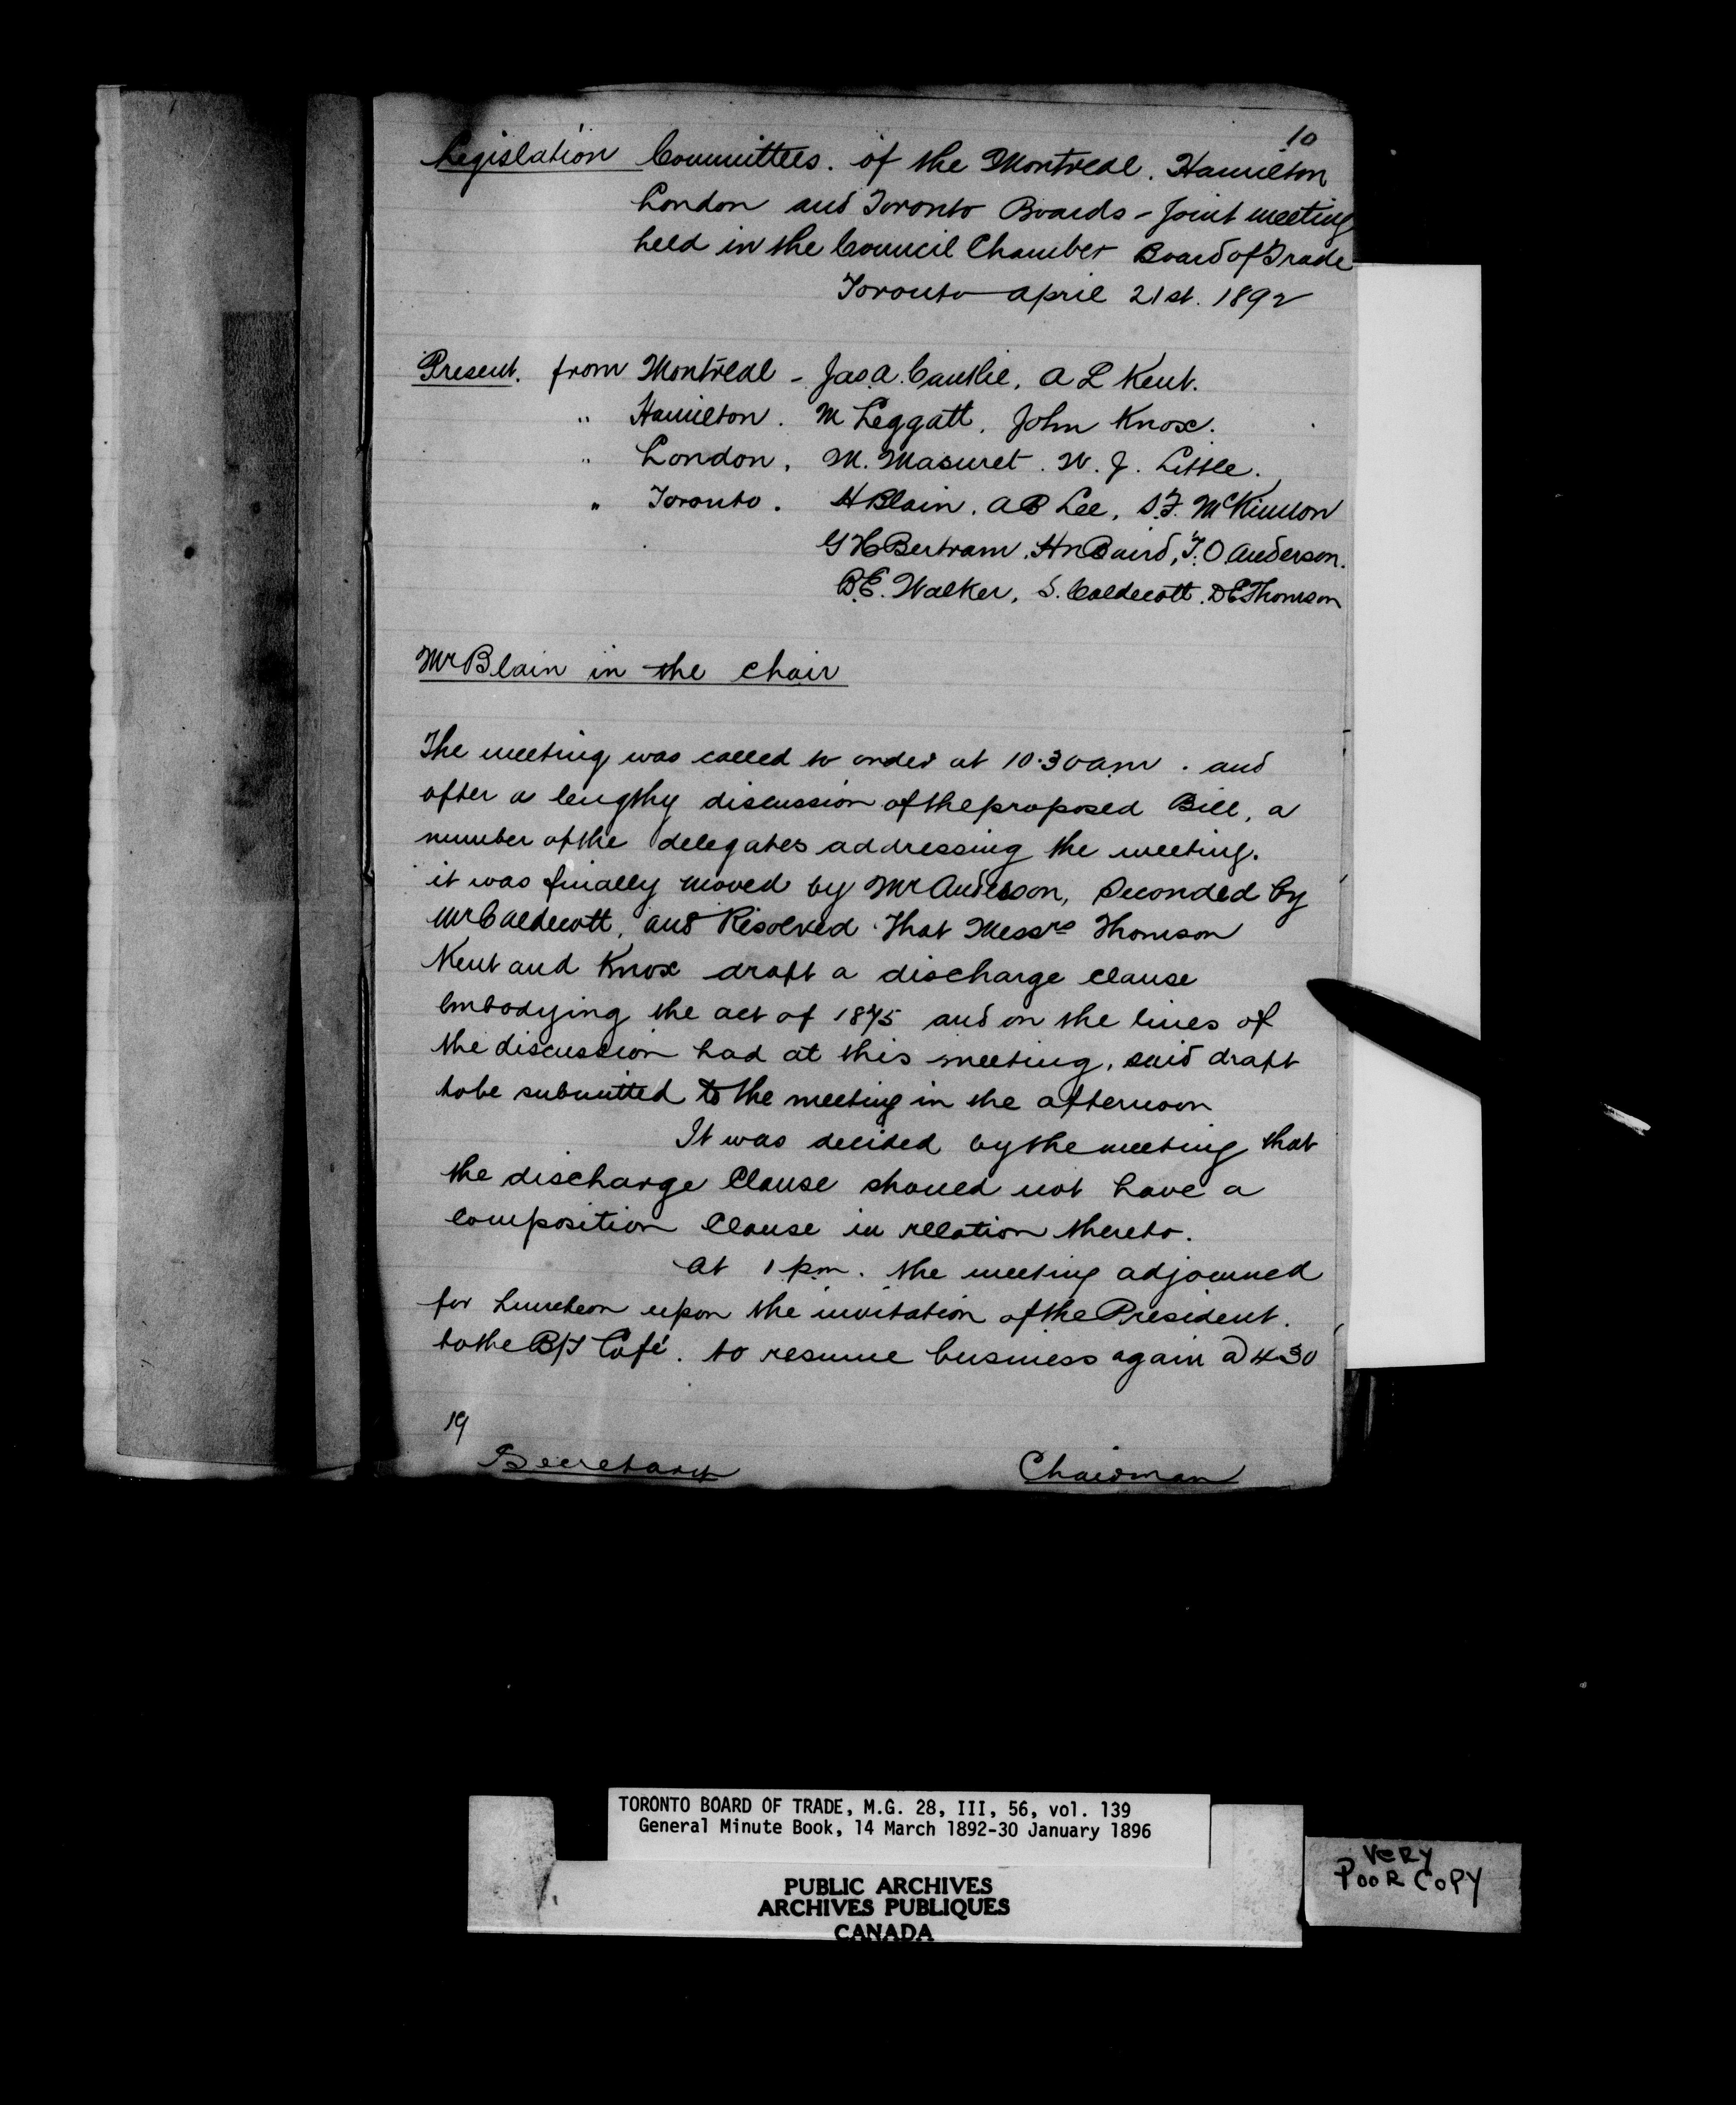 10
Legislation Committees. of the Montreal. Hamilton
London and Toronto Boards - Joint meeting
held in the Council Chamber Board of Trade
Toronto April 21st. 1892
Present. from Montreal - Jas. A. Cantlie, A L Kent.
" Hamilton. M Leggatt. John Knox.
" London, M. Masuret. W. J. Little.
" Toronto. H Blain. A B Lee, S.F. McKinnon
G H Bertram. H N Baird, T. O Anderson.
B.E. Walker, S. Caldecott. D E Thomson
Mr Blain in the Chair
The meeting was called to order at 10.30 am. and
after a lengthy discussion of the proposed Bill, a
number of the delegates addressing the meeting.
it was finally moved by Mr Anderson, Seconded by
Mr Caldecott, and Resolved. That Messrs Thomson
Kent and Knox draft a discharge clause
embodying the act of 1875 and on the lines of
the discussion had at this meeting, said draft
to be submitted to the meeting in the afternoon
It was decided by the meeting that
the discharge Clause should not have a
composition Clause in relation thereto.
At 1 p.m. the meeting adjourned
for Luncheon upon the invitation of the President.
to the B/T Café. to resume business again @ 4 30
19
Secretary Chairman
TORONTO BOARD OF TRADE, M.G. 28, III, 56, vol. 139
General Minute Book, 14 March 1892-30 January 1896
PUBLIC ARCHIVES
ARCHIVES PUBLIQUES
CANADA
VERY
POOR COPY